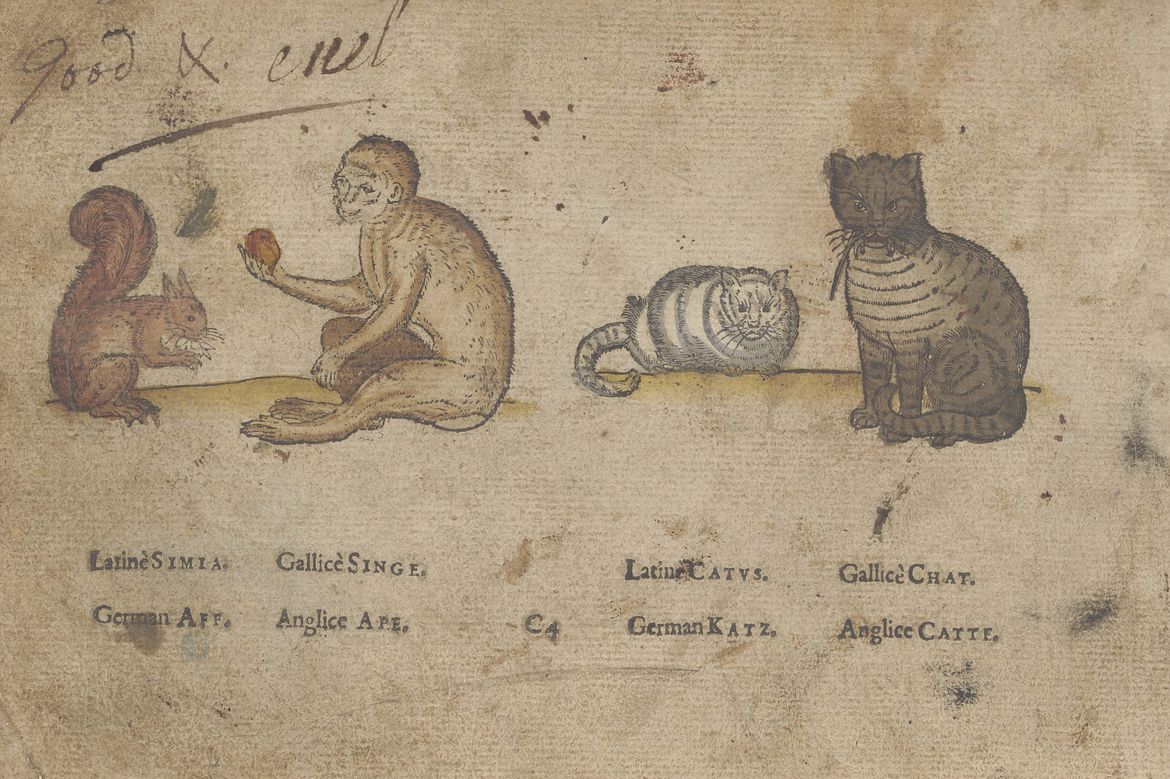 good &. evel
Latinè SIMIA. Gallicè SINGE.
German AFF. Anglice APE.
C4
Latinè CATVS. Gallicè CHAT.
German KATZ. Anglice CATTE.